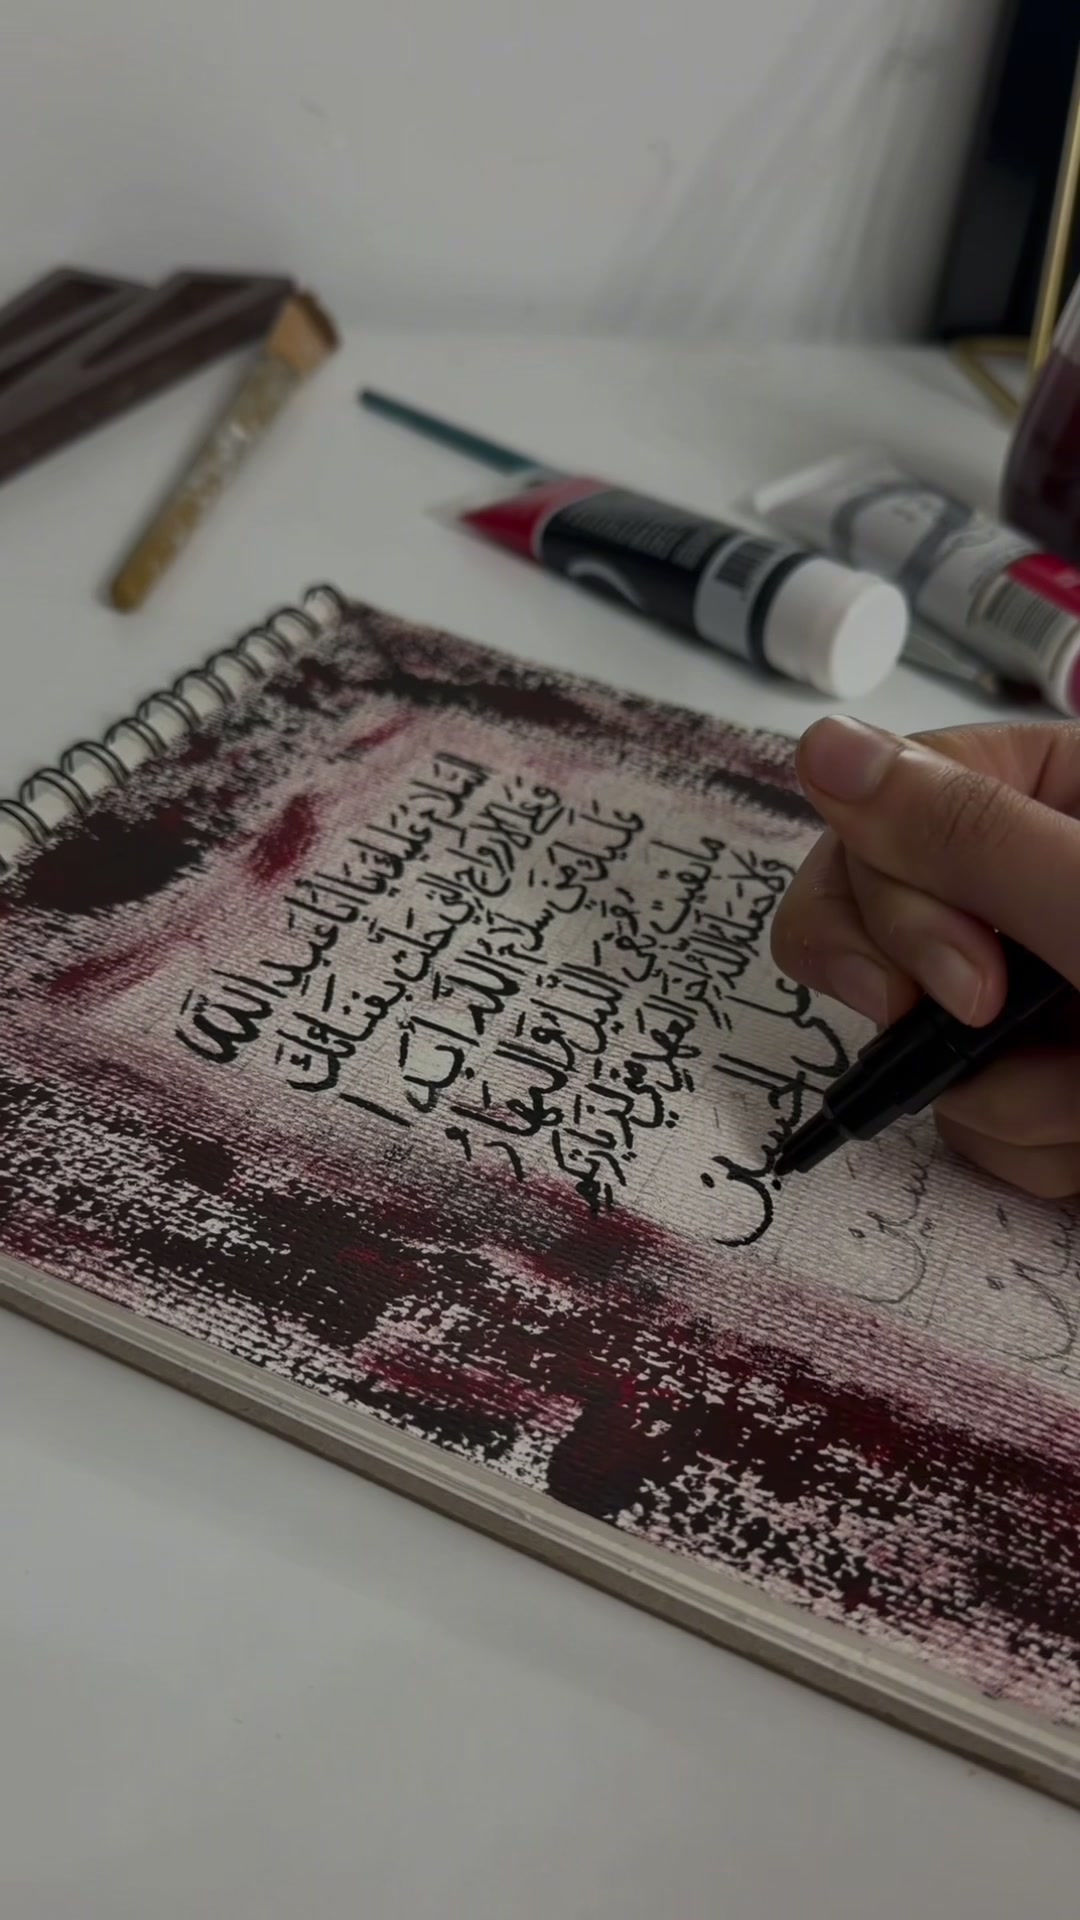 السَّلَامُ عَلَيْكَ يَا أَبَا عَبْدِ اللَّه
وَعَلَى الأرواحِ الَّتِي حَلَّتْ بِفِنَائِكَ
عَلَيْكَ مِنِّي سَلَامُ اللَّهِ أَبَدا
ما بَقيتُ وَبَقِيَ اللَّيْلُ وَالنَّهَارُ
وَلا جَعَلَهُ اللَّهُ آخِرَ العَهْدِ مِنِّي لِزِيَارَتِكُم
على الحسين